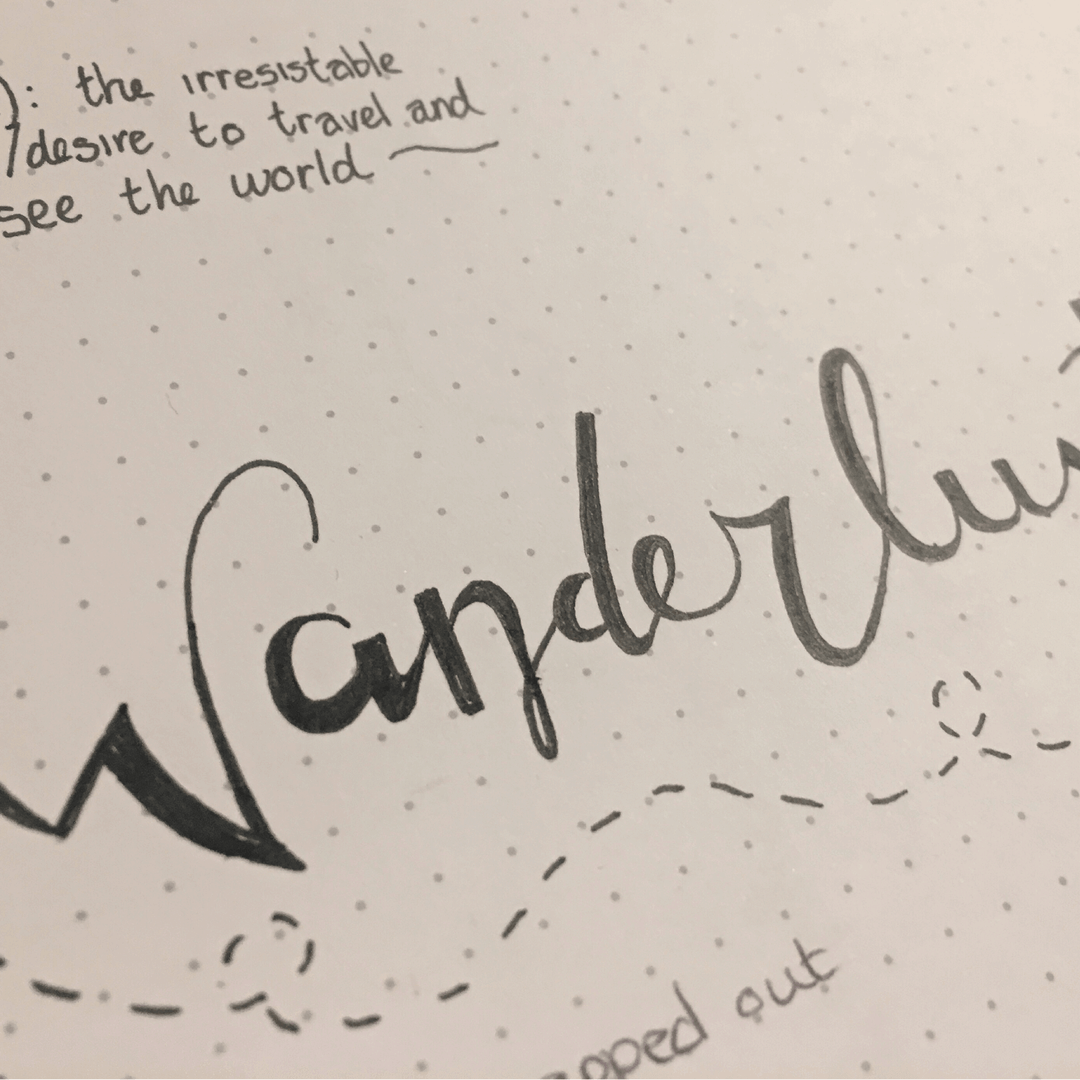 ): the irresistable
desire to travel and
see the world
Wanderlu
out